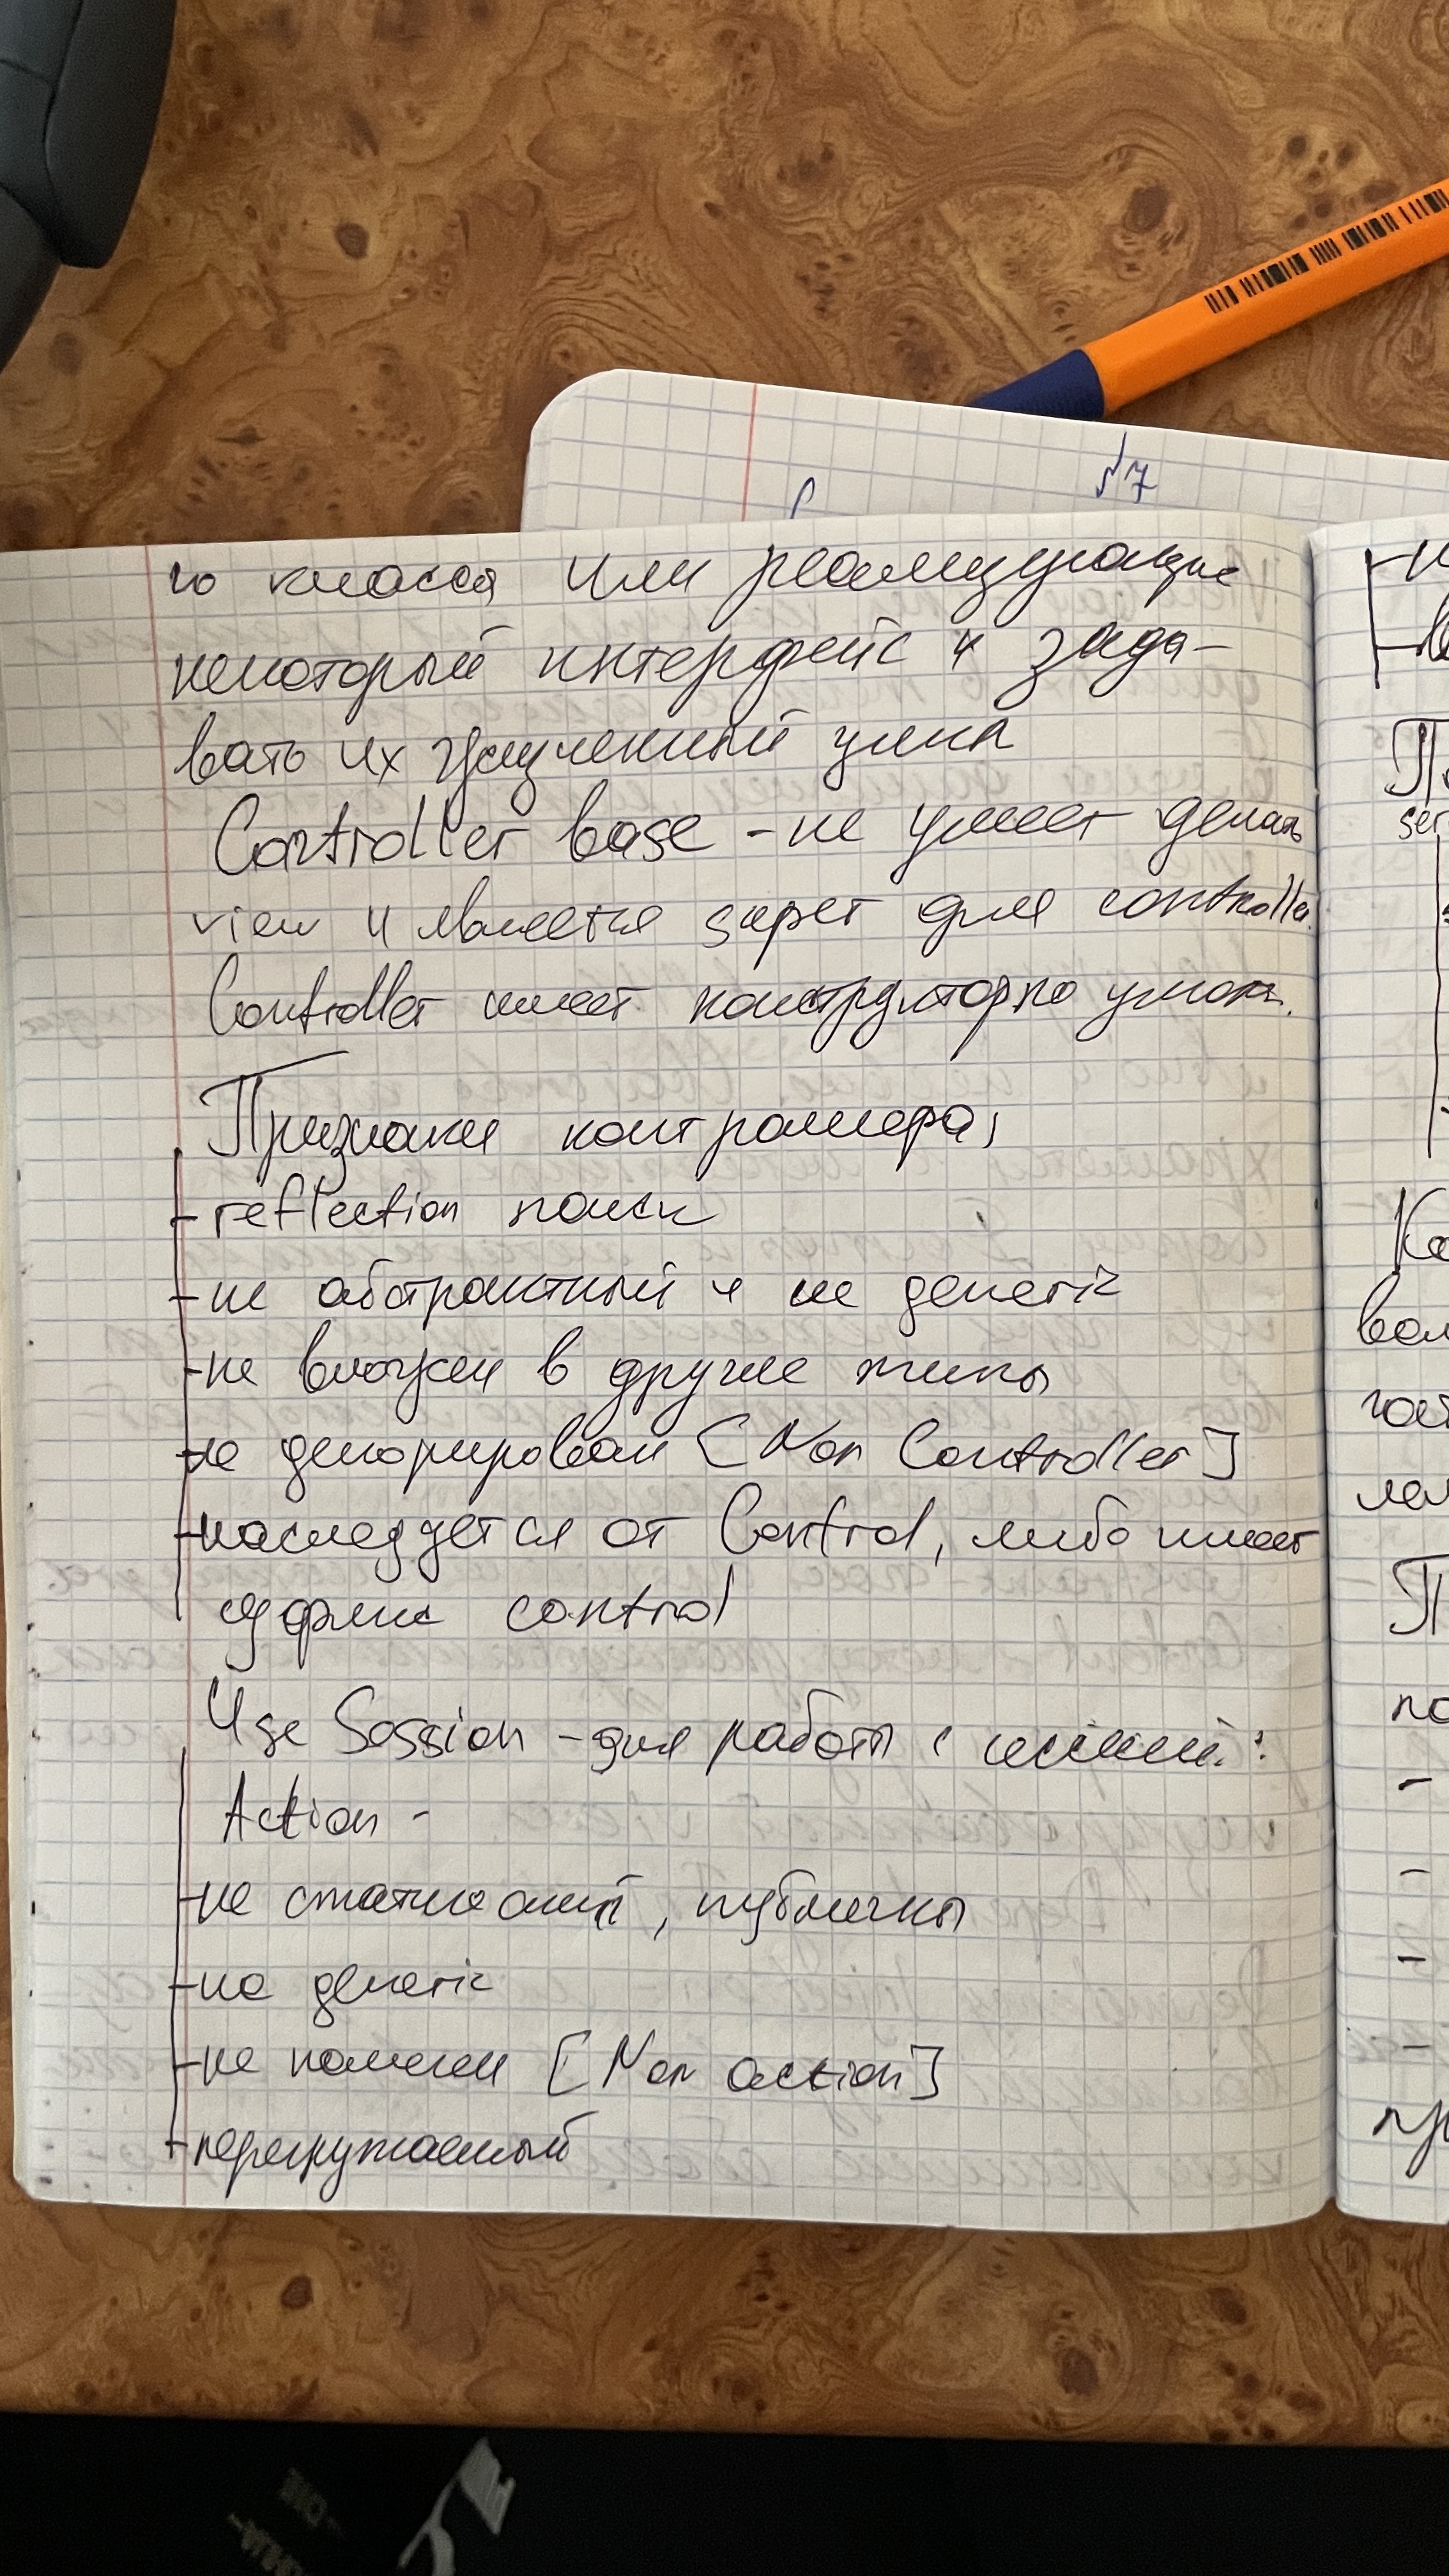 №7
го класса или реализующие
некоторый интерфейс и зада-
вать их жизненный цикл
Controller base - не умеет делать
view и является super для controller.
Controller имеет конструктор по умолч.
Признаки контроллера:
- reflection поиск
- не абстрактный и не generic
- не вложен в другие типы
- не декорирован [Non Controller]
- наследуется от Control, либо имеет
суффикс control
Use Session - для работы с сессией:
Action -
- не статический, публичны
- не generic
- не помечен [Non action]
- перегружаемый